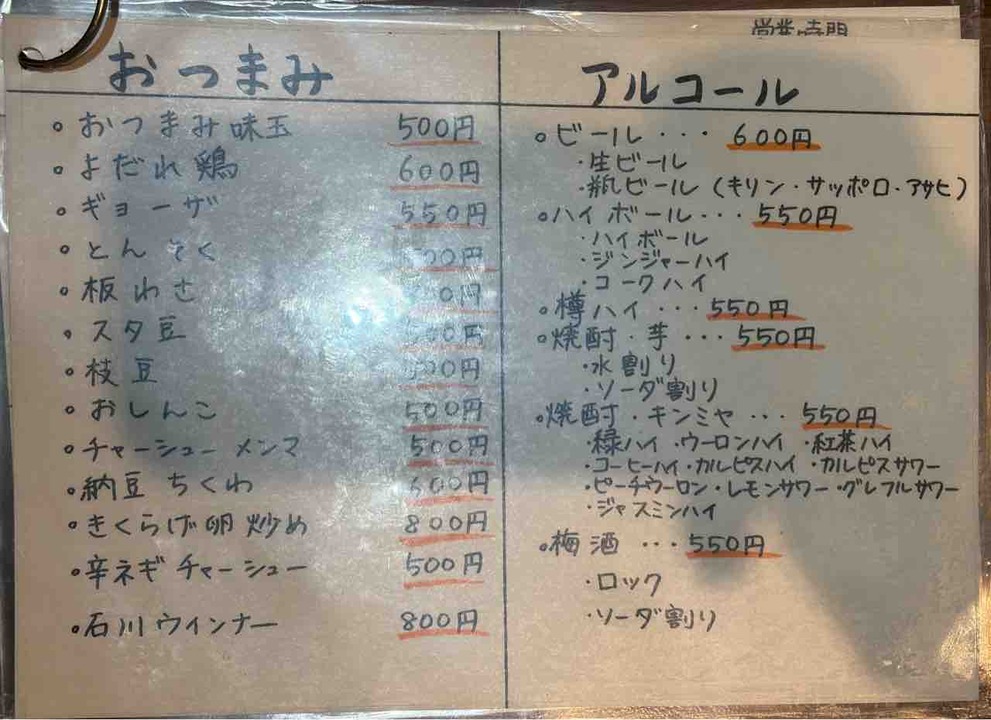 営業時間
おつまみ
・おつまみ味玉 500円
・よだれ鶏 600円
・ギョーザ 550円
・とんそく 00円
・板わさ 00円
・スタ豆 500円
・枝豆 500円
・おしんこ 500円
・チャーシューメンマ 500円
・納豆ちくわ 600円
・きくらげ卵炒め 800円
・辛ネギチャーシュー 500円
・石川ウインナー 800円
アルコール
・ビール・・・600円
・生ビール
・瓶ビール(キリン・サッポロ・アサヒ)
・ハイボール・・・550円
・ハイボール
・ジンジャーハイ
・コークハイ
・樽ハイ・・・550円
・焼酎・芋・・・550円
・水割り
・ソーダ割り
・焼酎・キンミヤ・・・550円
・緑ハイ・ウーロンハイ・紅茶ハイ
・コーヒーハイ・カルピスハイ・カルピスサワー
・ピーチウーロン・レモンサワー・グレフルサワー
・ジャスミンハイ
・梅酒・・・550円
・ロック
・ソーダ割り